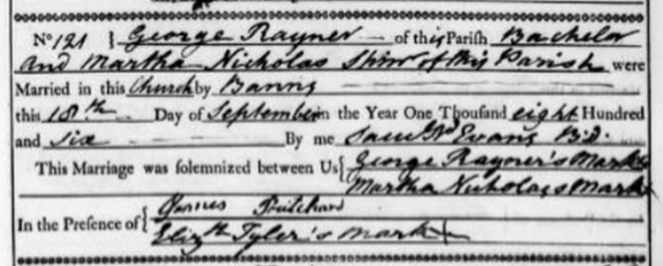 No 121 } George Rayner of this Parish Bachelor
and Martha Nicholas Spinr of this Parish were
Married in this Church by Banns
this 18th Day of September in the Year One Thousand eight Hundred
and Six By me Evans B.D.
This Marriage was solemnized between Us { George Rayner's Mark
Martha Nicholas Mark
In the Presence of { James Pritchard
Elizth Tyler's mark